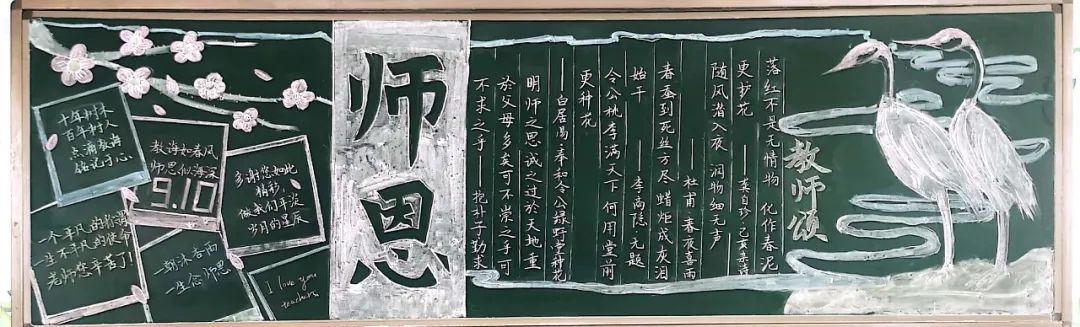 十年树木
百年树人
点滴教诲
铭记于心
教诲如春风
师恩似海深
9.10
多谢您如此
精彩,
做我们平淡
岁月的星辰
一个平凡的称谓
一生不平凡的使命
老师您辛苦了!
一朝沐杏雨
一生念师恩
I love you
teachers
师恩
教师颂
落红不是无情物 化作春泥
更护花 ——龚自珍·己亥杂诗
随风潜入夜 润物细无声
——杜甫·春夜喜雨
春蚕到死丝方尽 蜡炬成灰泪
始干 ——李商隐·无题
令公桃李满天下 何用堂前
更种花
——白居易·奉和令公绿野堂种花
明师之恩诚之过於天地重
於父母多矣可不崇之乎可
不求之乎——抱朴子勤求